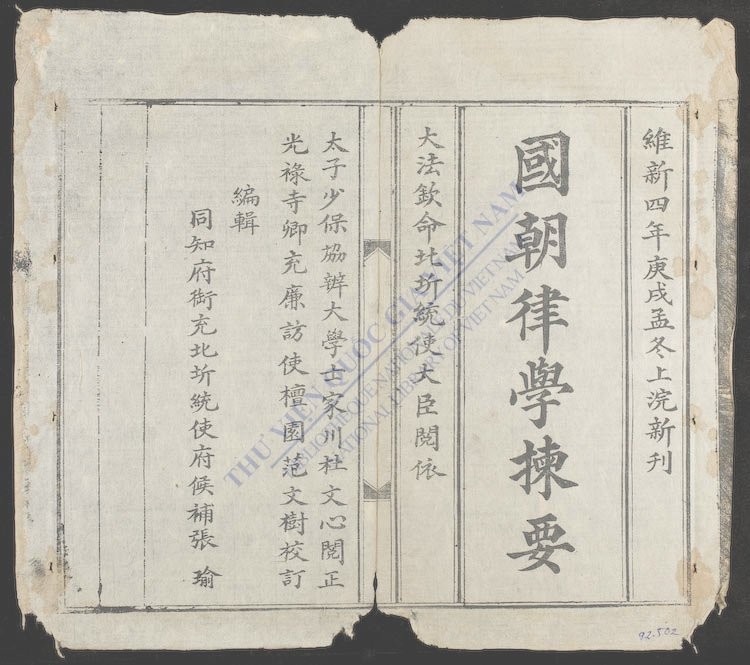 維新四年庚戌孟冬上浣新刊
國朝律學揀要
大法欽命北圻統使大臣閱依
太子少保協辦大學士家川杜文心閱正
光祿寺卿充廉訪使檀園范文樹校訂
編輯
同知府銜充北圻統使府候補張瑜
THƯ VIỆN QUỐC GIA VIỆT NAM
BIBLIOTHÈQUE NATIONALE DU VIETNAM
NATIONAL LIBRARY OF VIETNAM
92.502